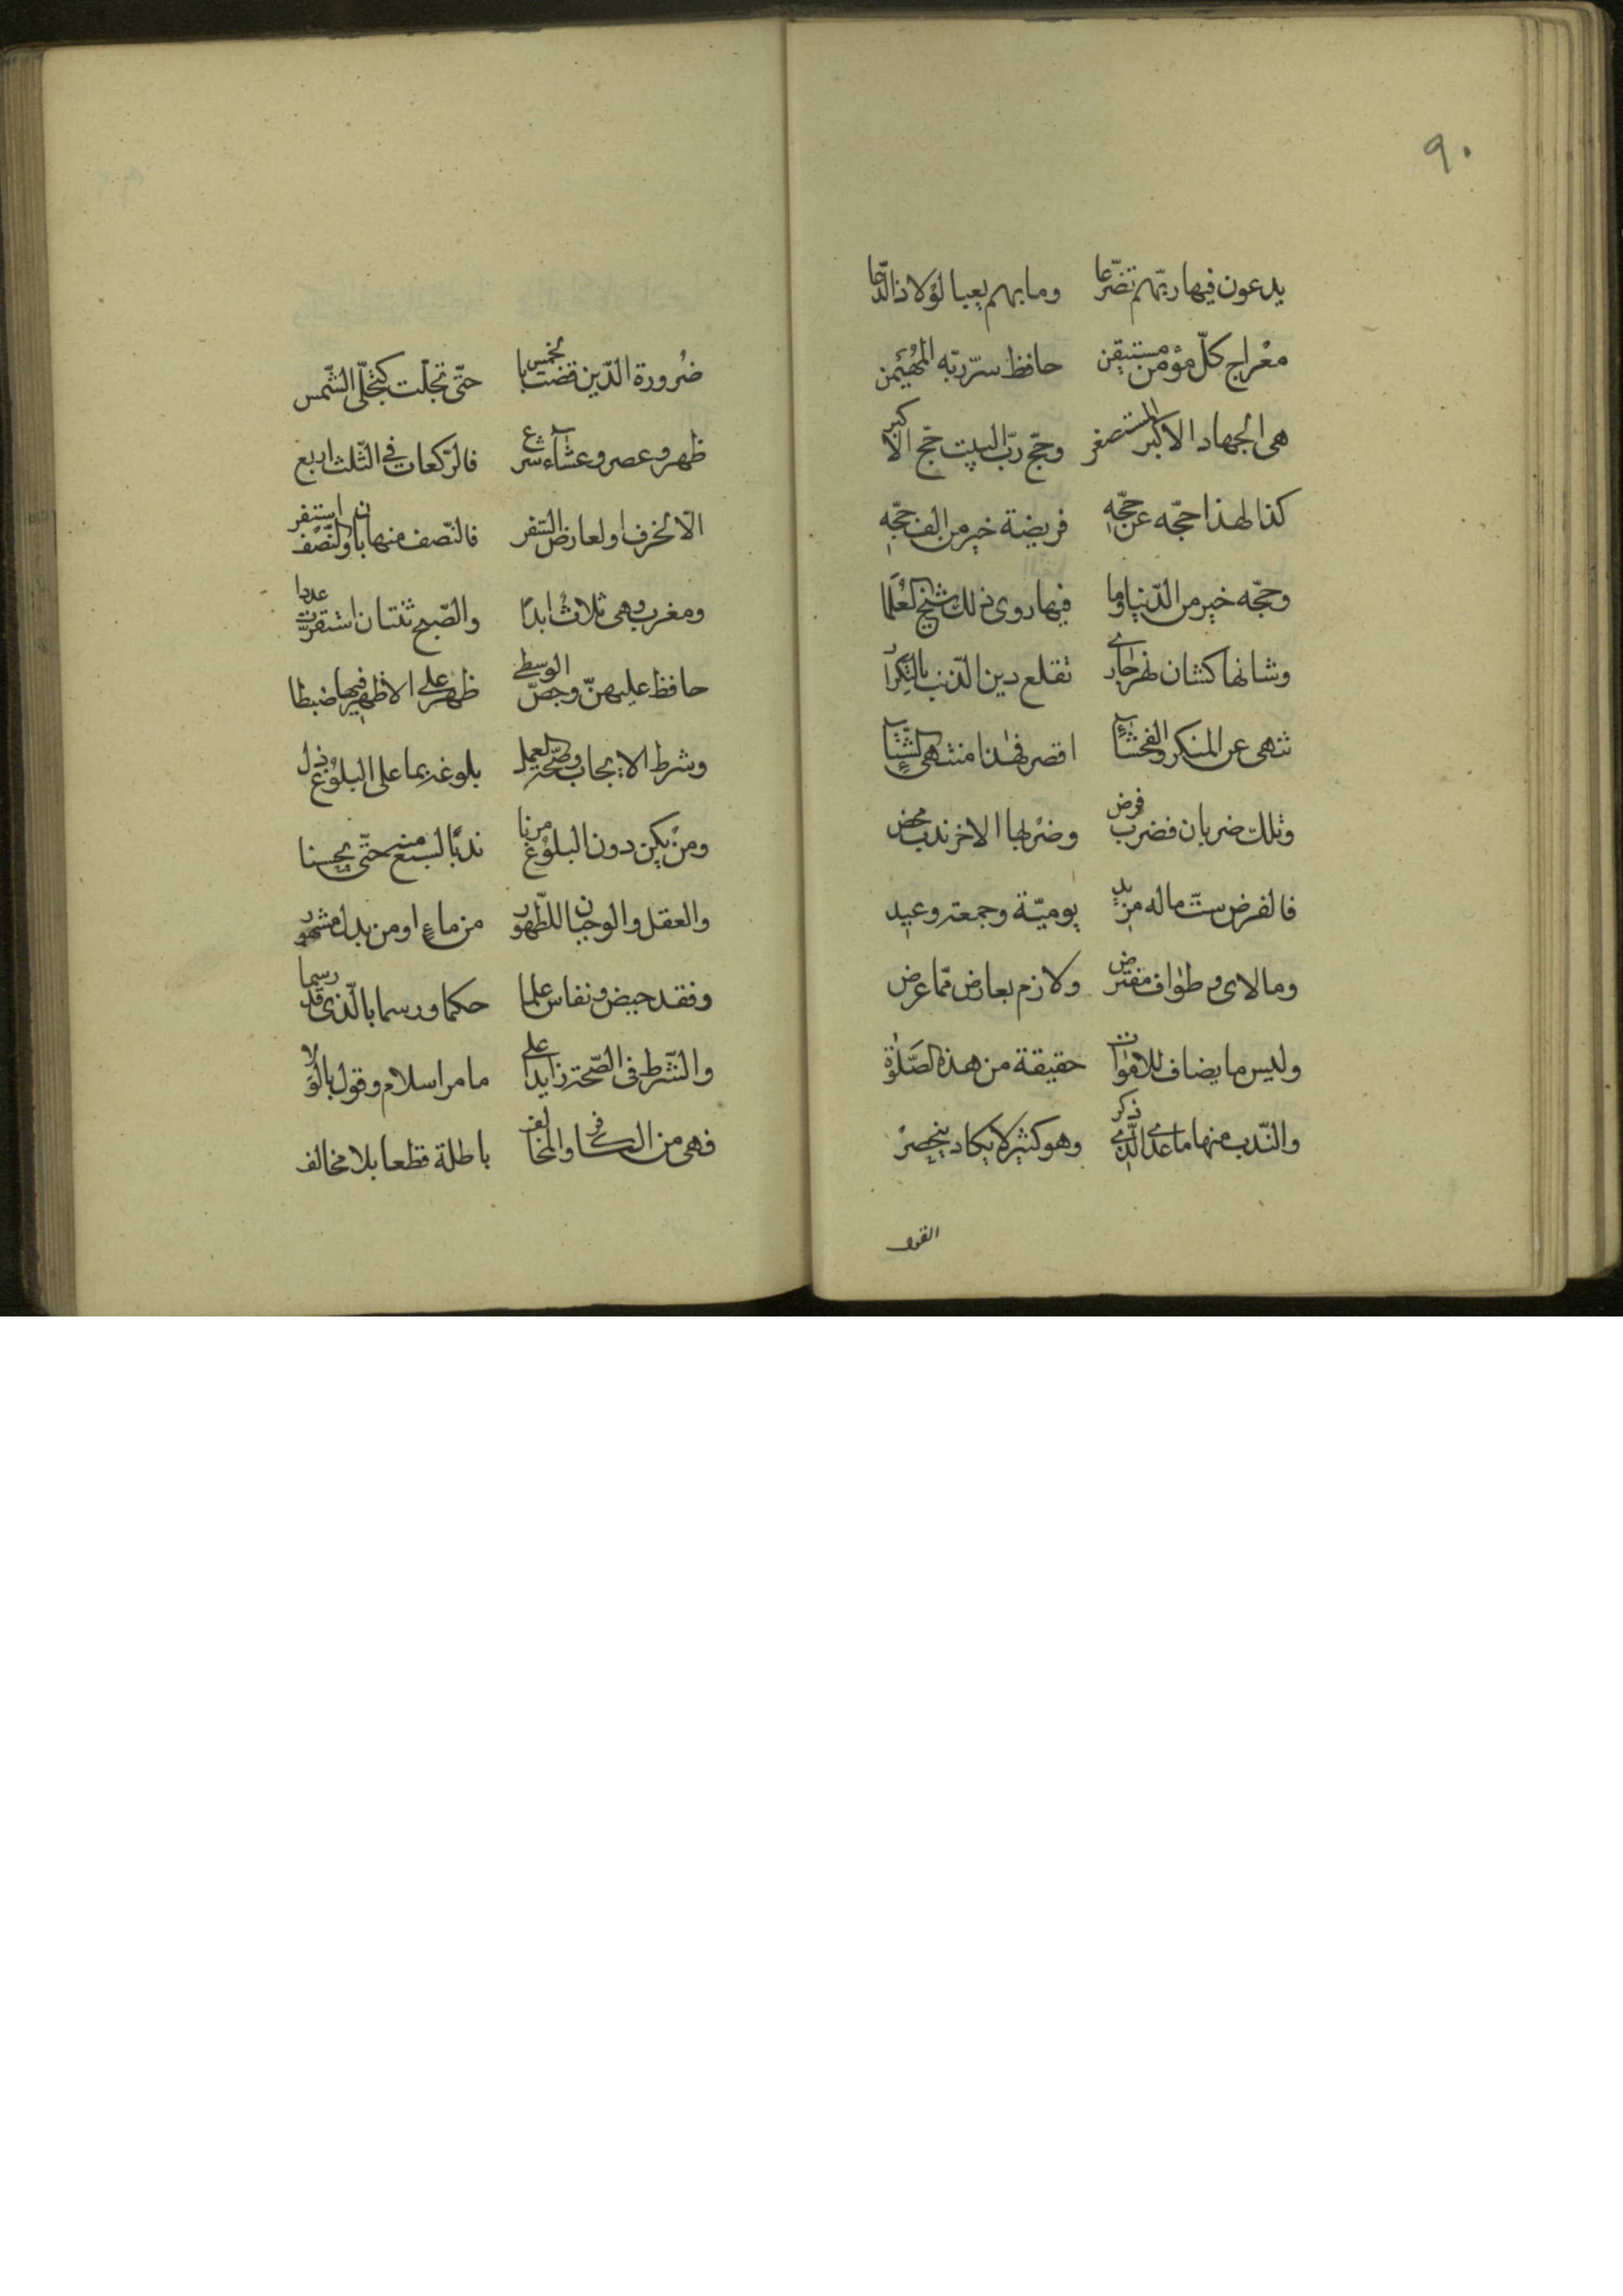 ٩٠
يدعون فيها ربّهم تضرّعا وما بهم يعبا لولا ذا الدّعا
معراج كلّ مؤمن مستيقن حافظ سرّ ربّه المهيمن
هي الجهاد الاكبر المستصغر وحجّ ربّ البيت حجّ الاكبر
كذا لهذا حجّه عن حجّه فريضة خير من الف حجّه
وحجّه خير من الدّنيا وما فيها روى ذلك شيخ العلما
وشانها كشان نهر جاري تقلع دين الذّنب بالتّكرار
تنهى عن المنكر والفحشاء اقصر فهذا منتهى الثّناء
وتلك ضربان فضرب فرض وضربها الاخر ندب محض
فالفرض ستّ ماله مزيد يوميّة وجمعة وعيد
وما لاى وطواف مفترض ولازم بعارض ممّا عرض
وليس ما يضاف للاموات حقيقة من هذه الصّلوة
والنّدب منها ما عدى الّذي ذكر وهو كثير لا يكاد ينحصر
القول
ضرورة الدّين قضت بالخمس حتّى تجلّت كتجلّى الشّمس
ظهر وعصر وعشاء شرع فالرّكعات في الثّلث اربع
الّا لخوف او لعارض السّفر فالنّصف منها بان والنّصف استفر
ومغرب وهى ثلاث ابدا والصّبح ثنتان استقرّت عددا
حافظ عليهنّ وخصّ الوسطى ظهر على الاظهر فيها ضبطا
وشرط الايجاب وصحّة العمل بلوغه بما على البلوغ دل
ومن يكن دون البلوغ مرنا ندبا لسبع منه حتّى يحسنا
والعقل والوجدان للطّهور من ماء او من بدل مشهور
وفقد حيض ونفاس علما حكما ورسما بالّذي قد رسما
والشّرط في الصّحة زايدا على ما مر اسلام وقول بالولا
فهى من الكافر والمخالف باطلة قطعا بلا مخالف